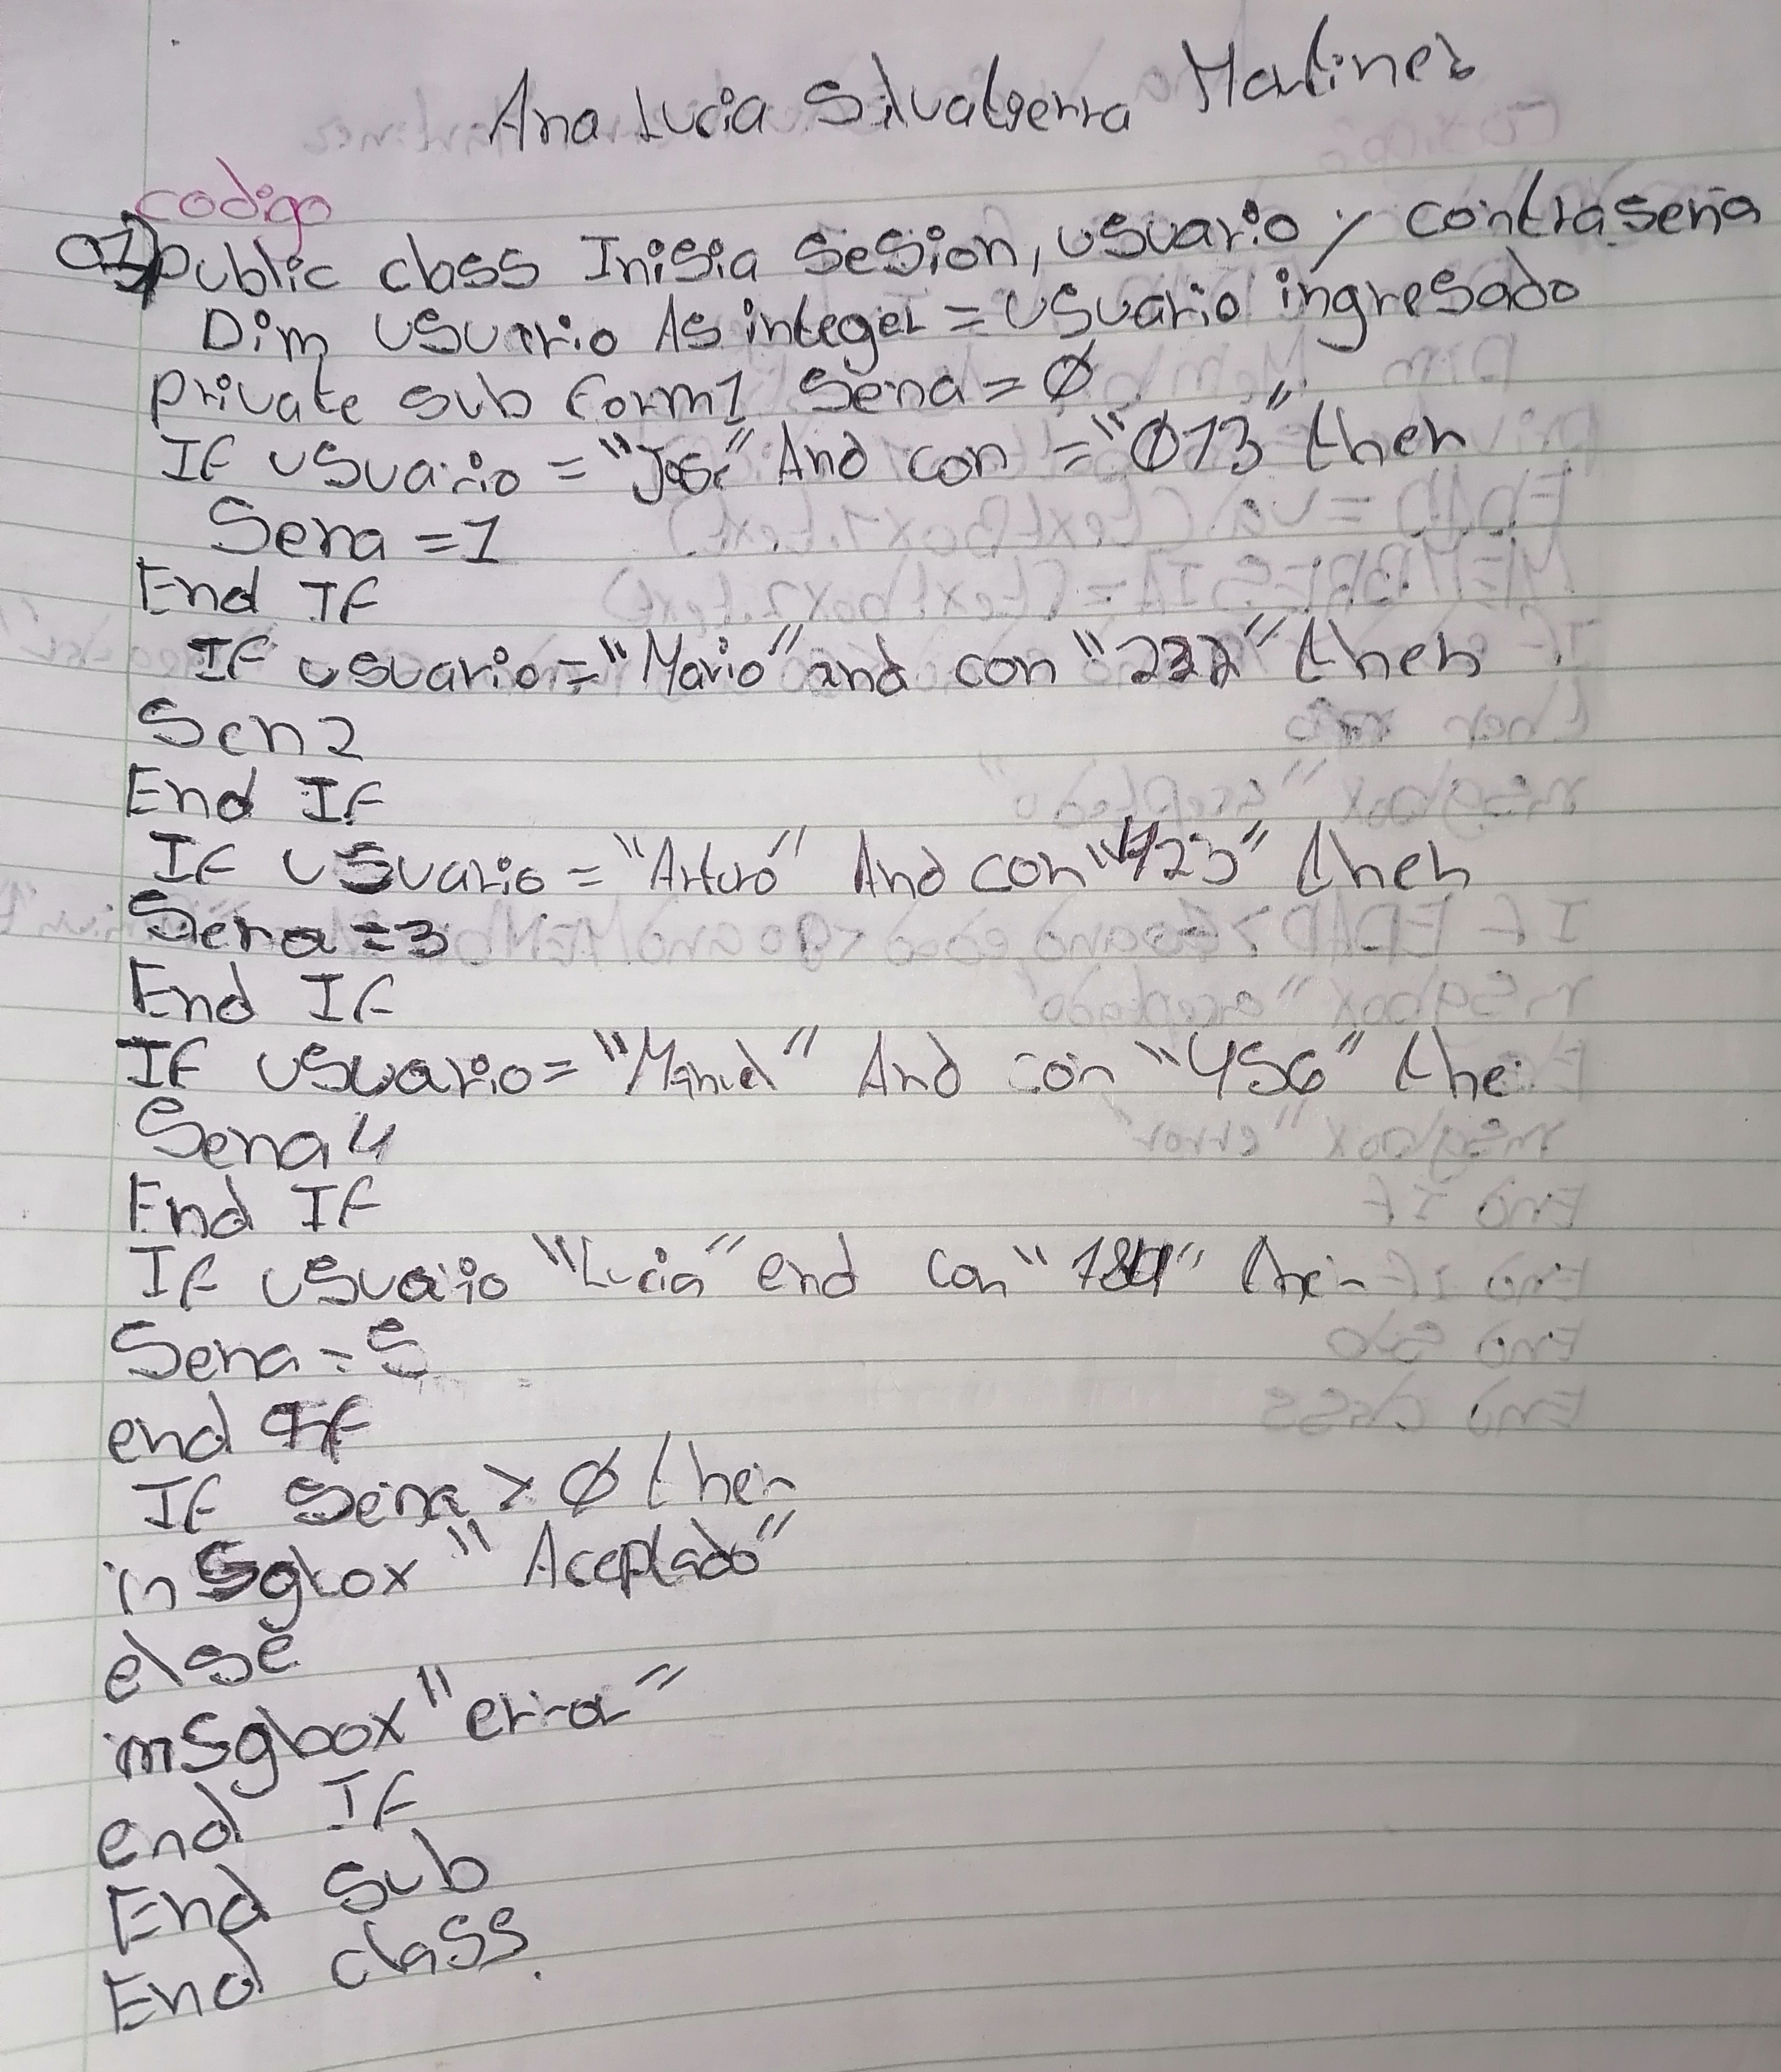 Ana Lucia Silvatierra Martinez
codigo
01) public class Inisia sesion, usuario y contraseña
Dim usuario As integer = usuario ingresado
private sub form1 sena = Ø
If usuario = "Jose" And con = "Ø13" then
Sena = 1
End If
If usuario = "Mario" and con "222" then
Sen 2
End If
If usuario = "Arturo" And con "423" then
Sena = 3
End If
If usuario = "Manuel" And con "456" the
Sena 4
End If
If usuario "Lucia" end con then
Sena = 5
end If
If sena > Ø then
msgbox "Aceptado"
else
msgbox "error"
end If
End Sub
End class.